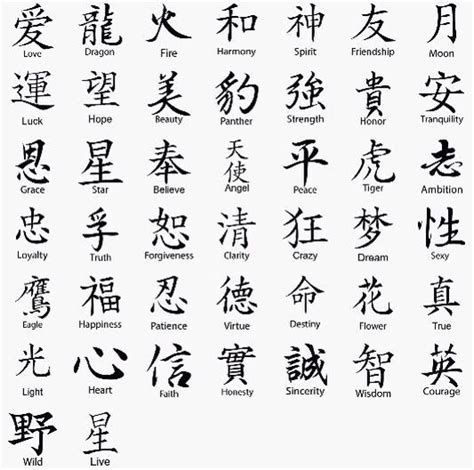 愛 龍 火 和 神 友 月
Love Dragon Fire Harmony Spirit Friendship Moon
運 望 美 豹 強 貴 安
Luck Hope Beauty Panther Strength Honor Tranquility
恩 星 奉 天使 平 虎 志
Grace Star Believe Angel Peace Tiger Ambition
忠 孚 恕 清 狂 梦 性
Loyalty Truth Forgiveness Clarity Crazy Dream Sexy
鷹 福 忍 德 命 花 真
Eagle Happiness Patience Virtue Destiny Flower True
光 心 信 實 誠 智 英
Light Heart Faith Honesty Sincerity Wisdom Courage
野 星
Wild Live